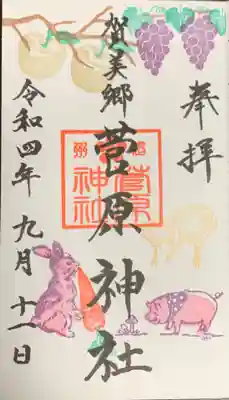 奉拝
賀美郷
菅原神社
令和四年 九月 十一日
菅原
神社